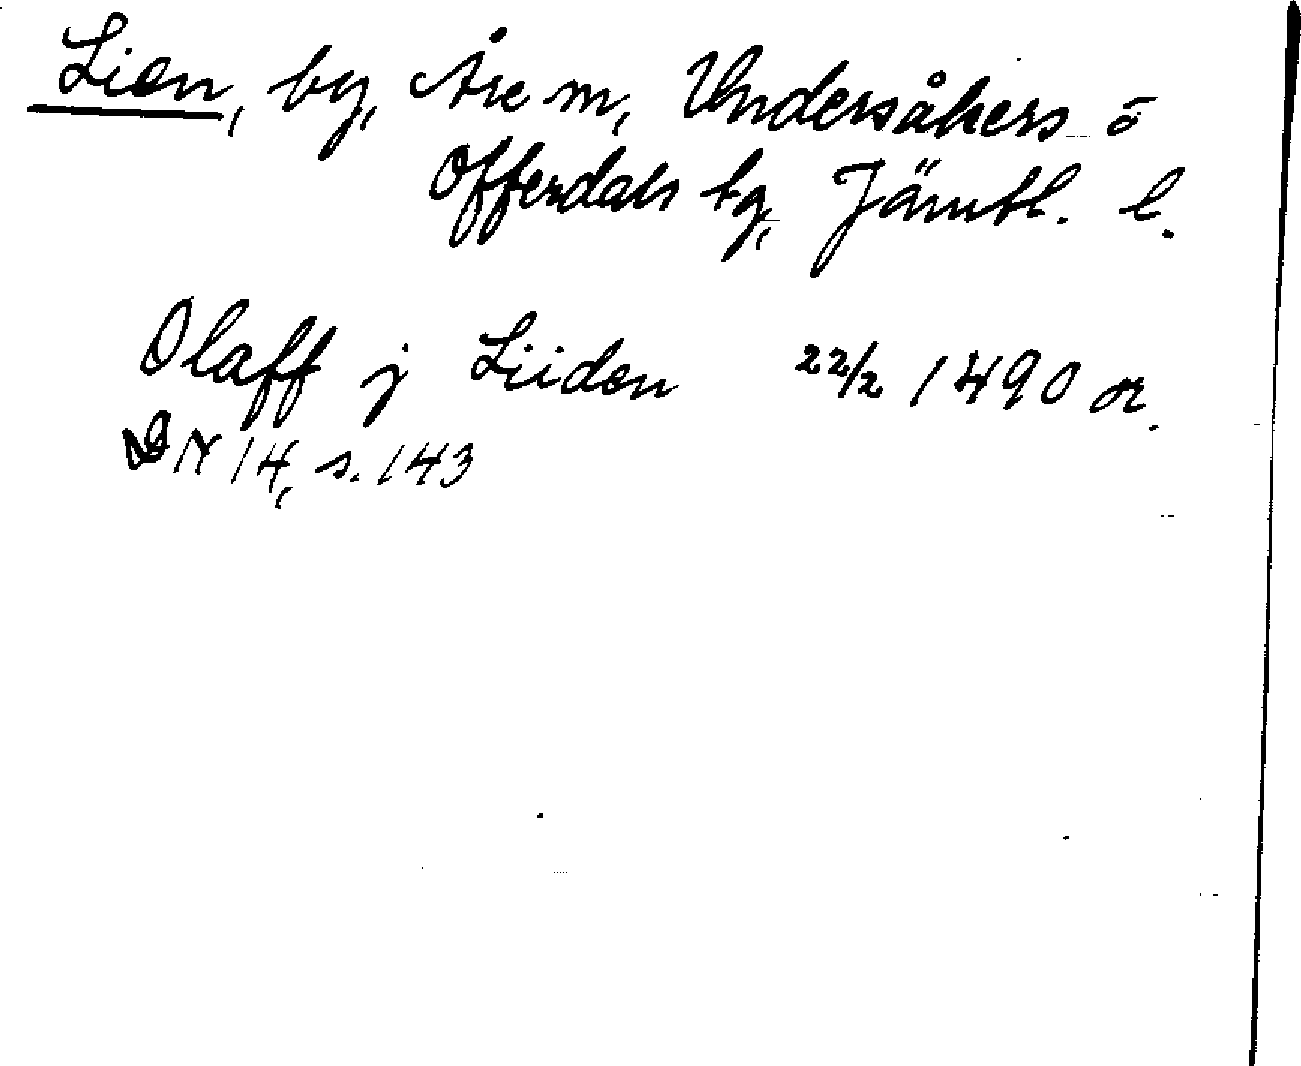 Lien, by, Åre sn, Undersåkers o
Offerdals tg, Jämtl. l.
Olaff j Liiden 22/2 1490 or.
DN 14, s. 143